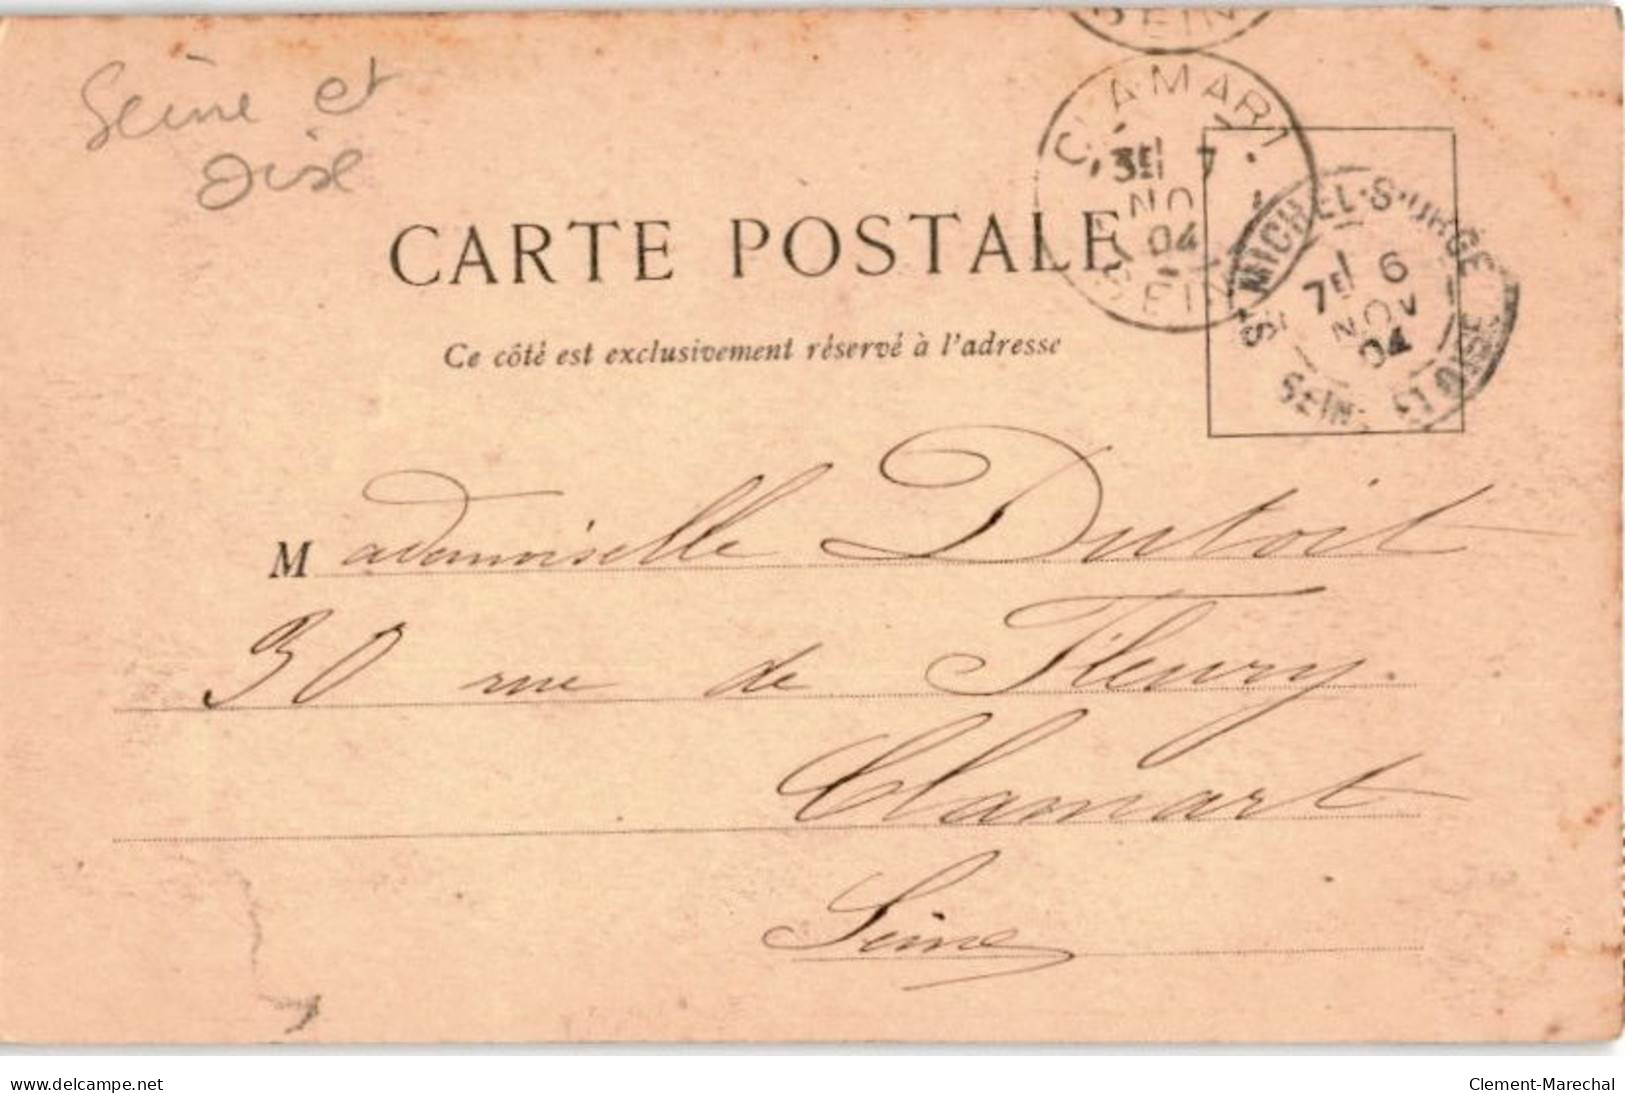 Seine et
Oise
SEIN
CLAMART
3E 7
NO
04
SEIN
CARTE POSTALE
ST MICHEL-S-ORGE
7E 6
NOV
04
SEINE ET OISE
Ce côté est exclusivement réservé à l'adresse
Mademoiselle Dutoit
30 rue de Fleury.
Clamart
Seine
delcampe.net
Clement-Marechal